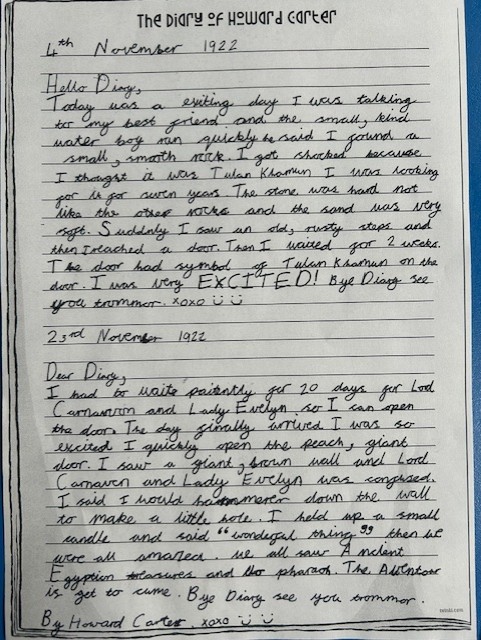 The Diary of Howard Carter
4th November 1922
Hello Diary,
Today was a exiting day I was talking
to my best friend and the small, kind
water boy ran quickly he said I found a
small, smooth rock. I got shocked because
I thought it was Tutan Khamun I was looking
for it for seven years The stone was hard not
like the other rocks and the sand was very
soft. Suddenly I saw an old, rusty steps and
then I reached a door. Then I waited for 2 weeks.
The door had symbol of Tutan Khamun on the
door. I was very EXCITED! Bye Diary see
you trommor. xoxo
23rd November 1922
Dear Diary,
I had to waite paitently for 20 days for Lord
Carnarvon and Lady Evelyn so I can open
the door. The day finally arrived I was so
excited I quickly open the peach, giant
door. I saw a giant, brown wall and Lord
Carnaven and Lady Evelyn was confused.
I said I would hammerer down the wall
to make a little hole. I held up a small
candle and said "wonderful thing" then we
were all amazed. we all saw Ancient
Egyption treasures and pharaoh. The Adventoor
is get to cume. Bye Diary see you trommor.
By Howard Carter. xoxo